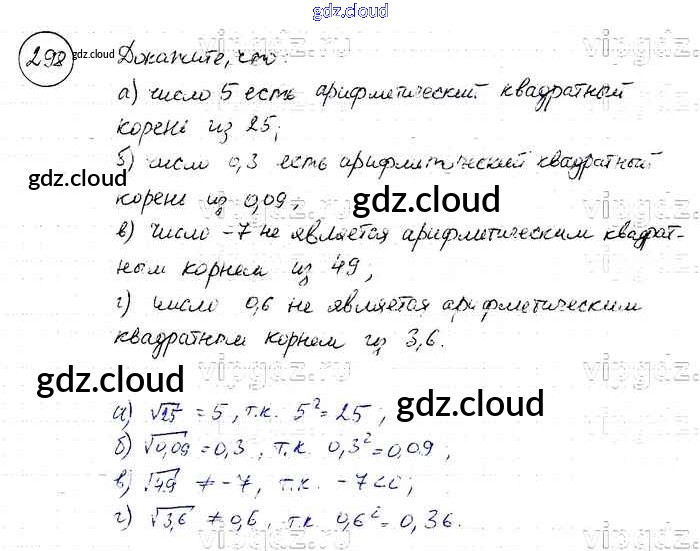 gdz.cloud
298 gdz.cloud Докажите, что:
а) число 5 есть арифметический квадратный
корень из 25;
б) число 0,3 есть арифметический квадратный
gdz.cloud
корень из 0,09; gdz.cloud
в) число -7 не является арифметическим квадрат-
ным корнем из 49;
г) число 0,6 не является арифметическим
квадратным корнем из 3,6.
vipgdz.ru
gdz.cloud
gdz.cloud
а) √25 = 5, т.к. 5² = 25;
б) √0,09 = 0,3, т.к. 0,3² = 0,09;
в) √49 ≠ -7, т.к. -7 <
г) √3,6 ≠ 0,6, т.к. 0,6² = 0,36.